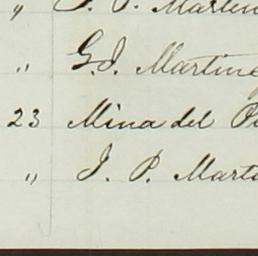 " J. P. Martin
" G. J. Martine
23 Mina del P
" J. P. Mart